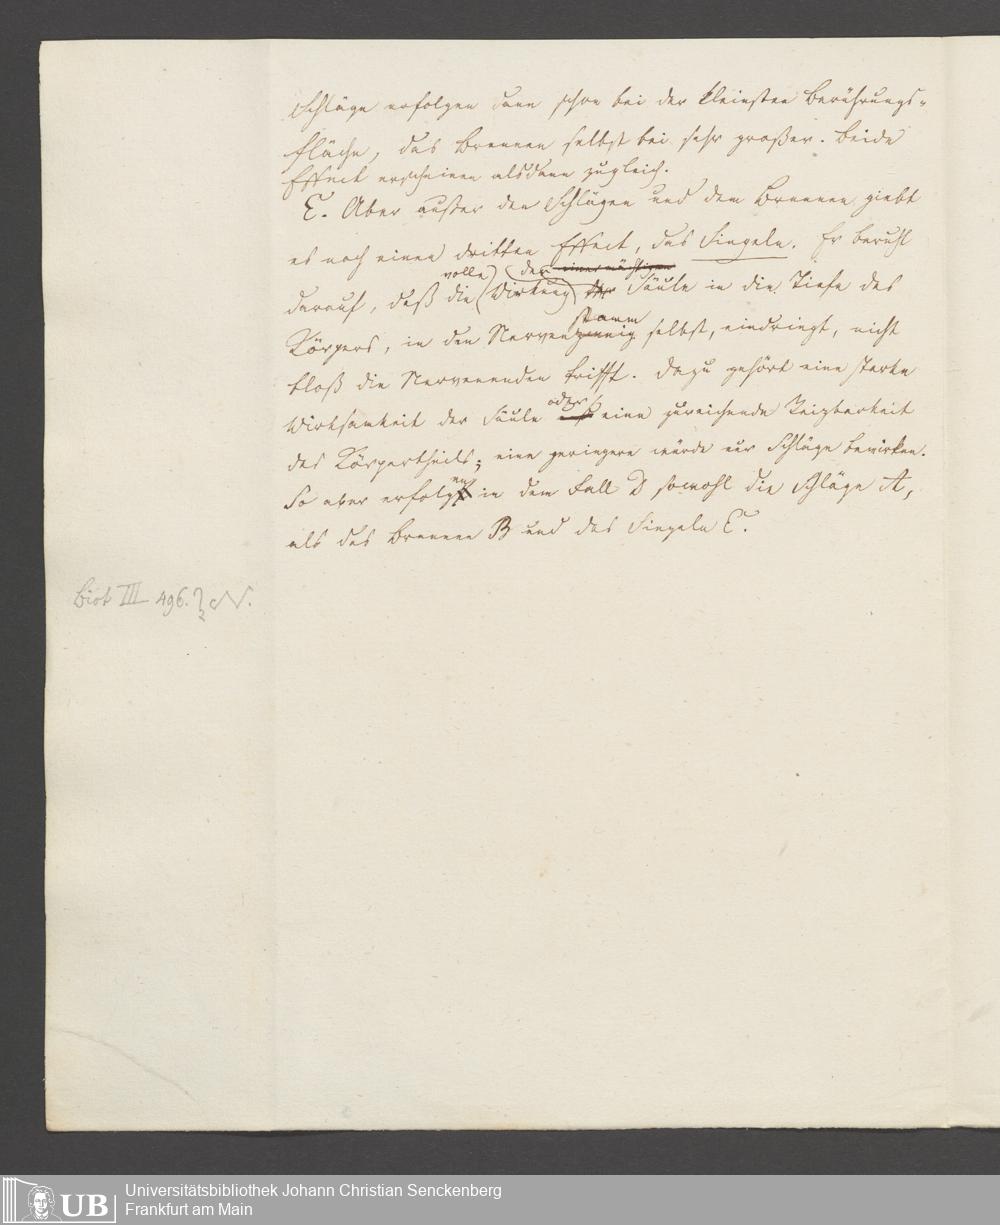 Schläge erfolgen dann schon bei der kleinsten Berührungs-
fläche, das Brennen selbst bei sehr großer. Beide
Effect erscheinen alsdann zugleich.
E. Aber außer den Schlägen und dem Brennen giebt
es noch einen dritten Effect, das Singeln. Er beruht
volle der einer mächtigen
darauf, daß die Wirkung der Säule in die Tiefe des
stamm
Körpers, in den Nervenzweig selbst, eindringt, nicht
bloß die Nervenenden trifft. Dazu gehört eine starke
oder
Wirksamkeit der Säule eine zureichende Reizbarkeit
des Körpertheils; eine geringere würde nur Schläge bewirken.
en
So aber erfolgt in dem Fall D sowohl die Schläge A,
als das Brennen B und das Singeln E.
Biot III 496. N.